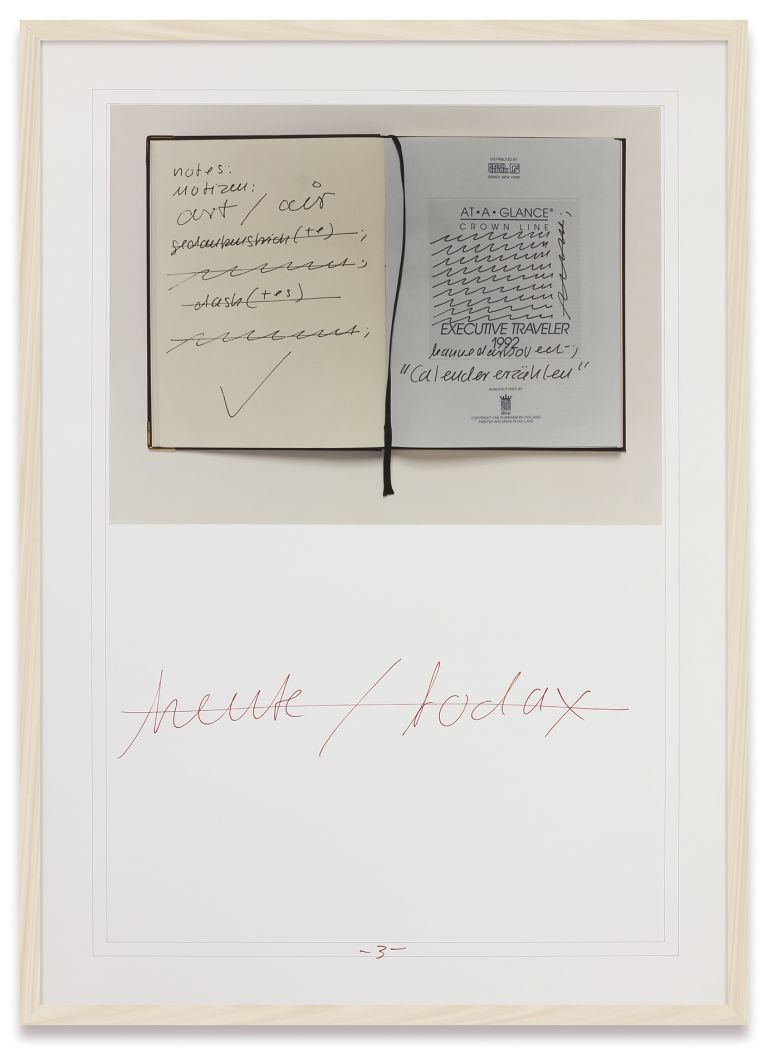 notes:
notizen:
art / air
gedankenstrich(+e) ;
dash(+es)
DISTRIBUTED BY
KEITH CLARK
SIDNEY, NEW YORK
AT•A•GLANCE®
CROWN LINE
EXECUTIVE TRAVELER
1992
hannedarboven-;
"Calendererzählen"
MANUFACTURED BY
COPYRIGHT VAN RIJMENAM BV HOLLAND
PRINTED AND MADE IN HOLLAND
heute / today
-3-